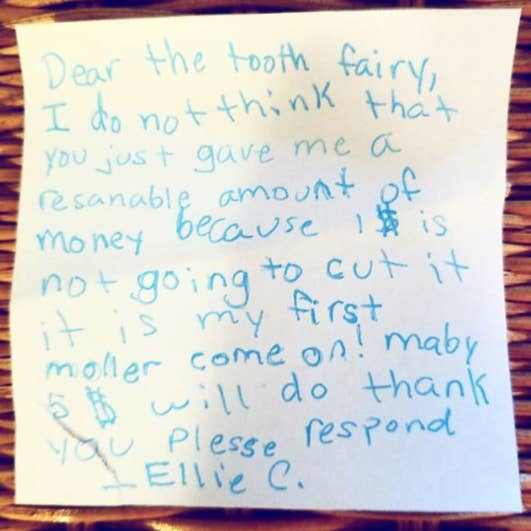 Dear the tooth fairy,
I do not think that
you just gave me a
resanable amount of
money because 1$ is
not going to cut it
it is my first
moller come on! maby
5$ will do thank
you plesse respond
- Ellie C.